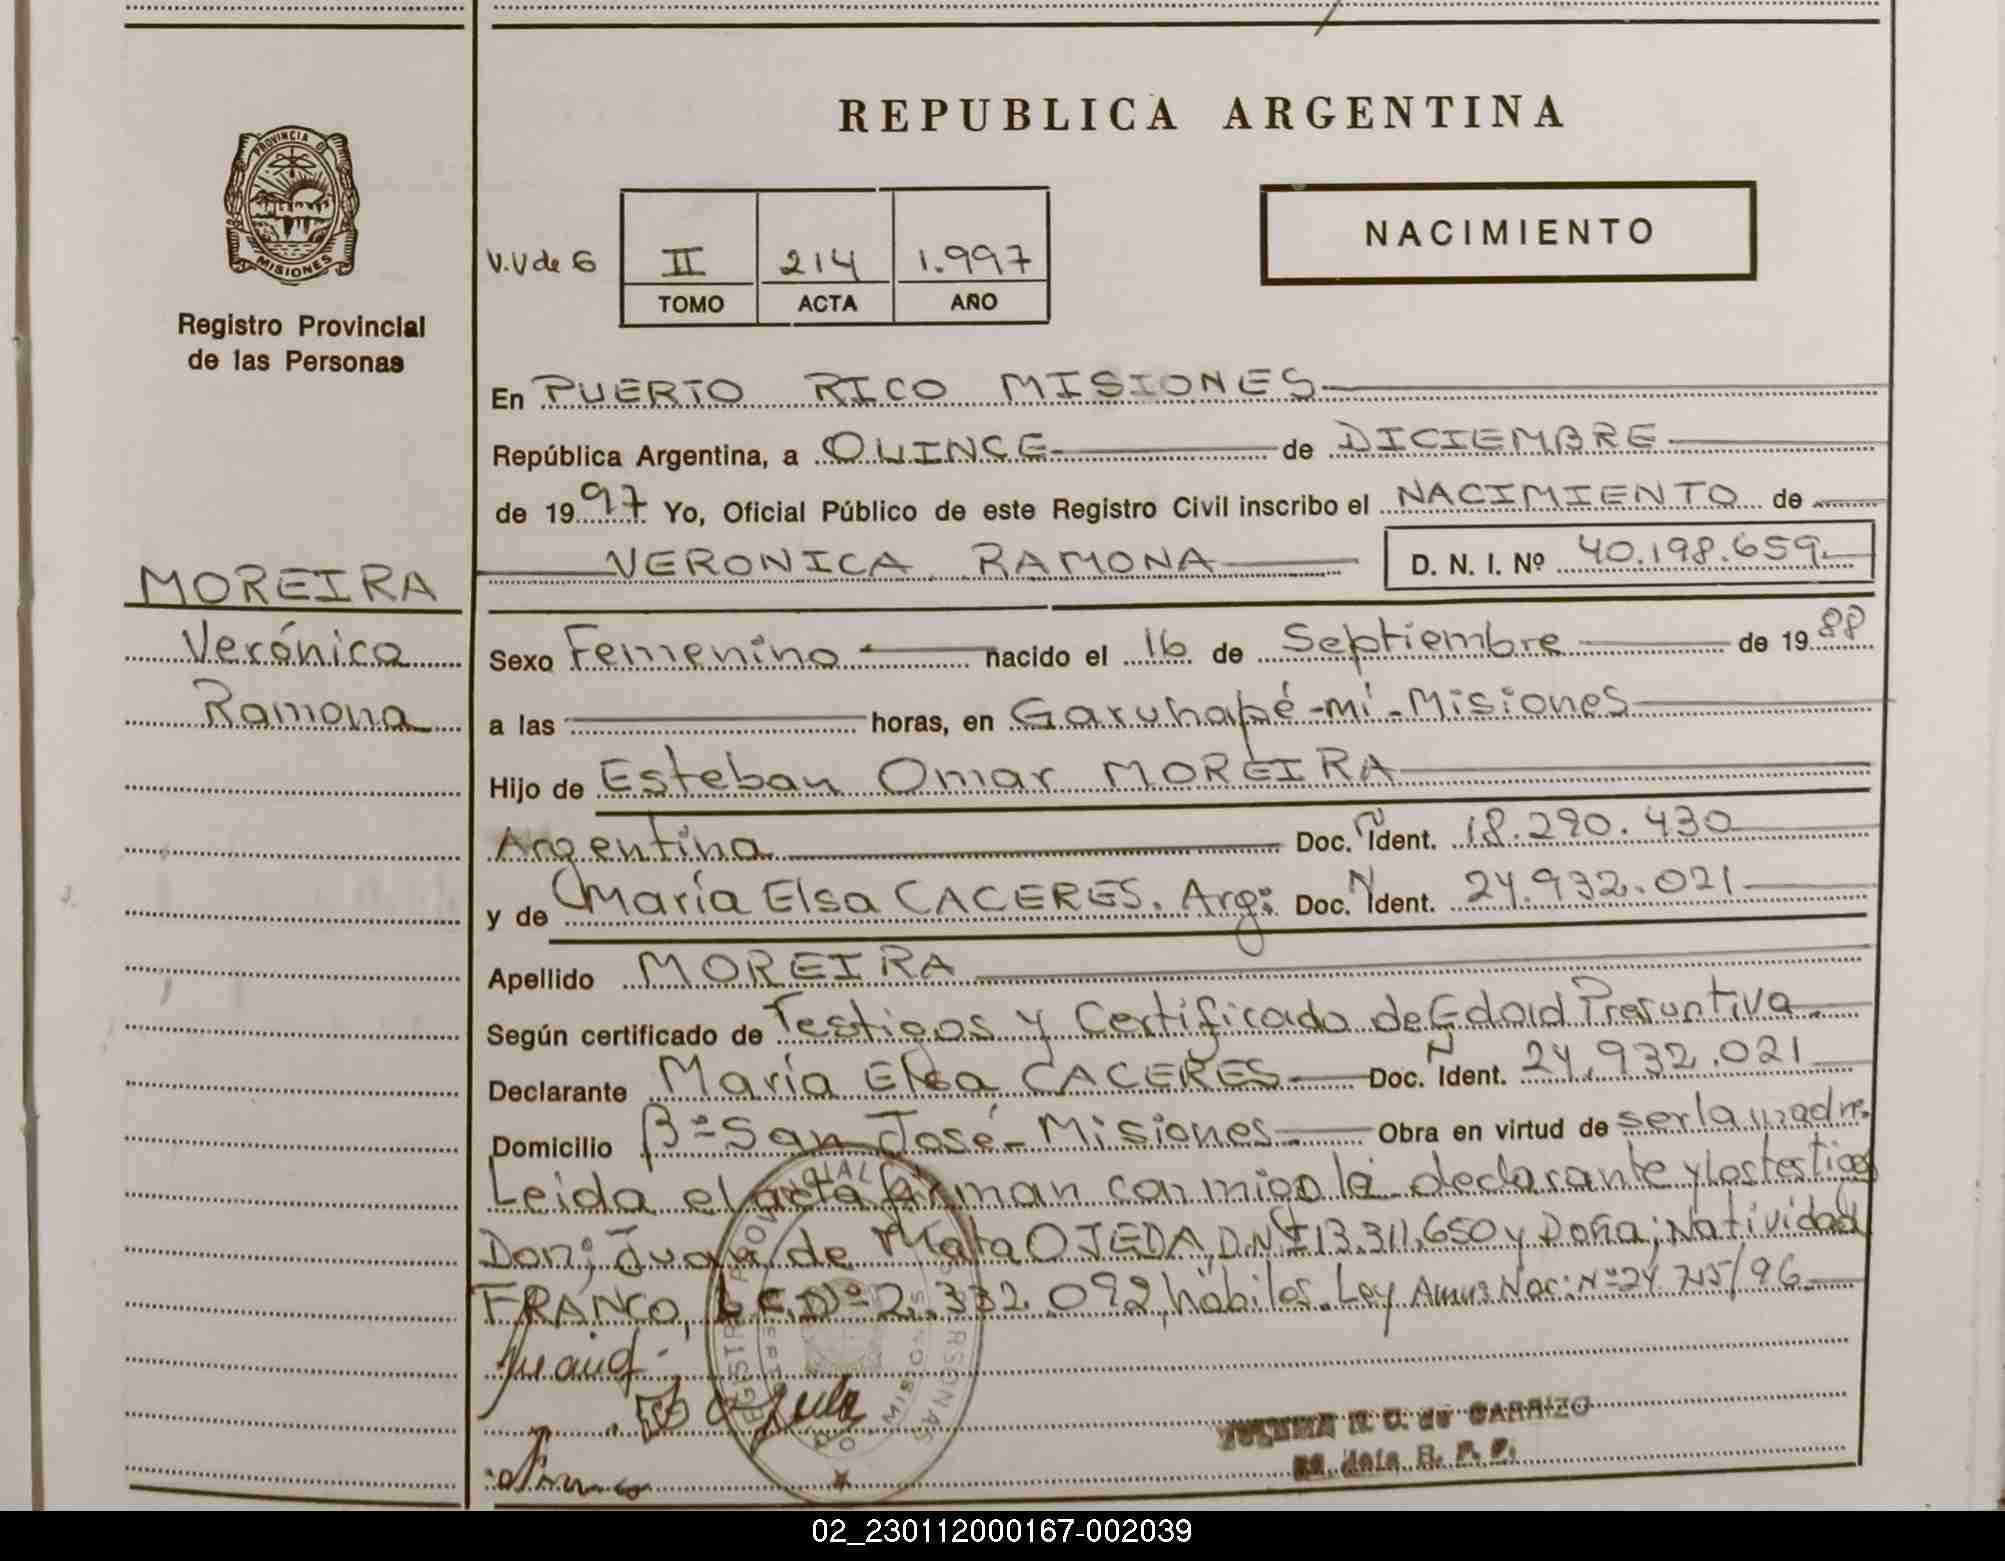 REPUBLICA ARGENTINA
PROVINCIA DE
MISIONES
Registro Provincial
de las Personas
NACIMIENTO
V.V de 6
II 214 1.997
TOMO ACTA AÑO
En PUERTO RICO MISIONES
República Argentina, a QUINCE de DICIEMBRE
de 1997 Yo, Oficial Público de este Registro Civil inscribo el NACIMIENTO de
VERONICA RAMONA D. N. I. Nº 40.198.659
MOREIRA
Verónica
Ramona
Sexo Femenino nacido el 16 de Septiembre de 1988
a las horas, en Garuhapé-mí-Misiones
Hijo de Esteban Omar MOREIRA
Argentina Doc. N Ident. 18.290.430
y de María Elsa CACERES. Arg: Doc. N Ident. 24.932.021
Apellido MOREIRA
Según certificado de Testigos y Certificado de Edad Presuntiva
Declarante María Elsa CACERES Doc. N Ident. 24.932.021
Domicilio Bº San José-Misiones Obra en virtud de ser la madre.
Leida el acta firman conmigo la declarante y los testigos
Don; Juan de Mata OJEDA, D.N.I 13.311.650 y Doña; Natividad
FRANCO, L.C.Nº 2.332.092, hábiles. Ley Nac: Nº 24.715/96
de CARRIZO
R. P. P.
02_230112000167-002039